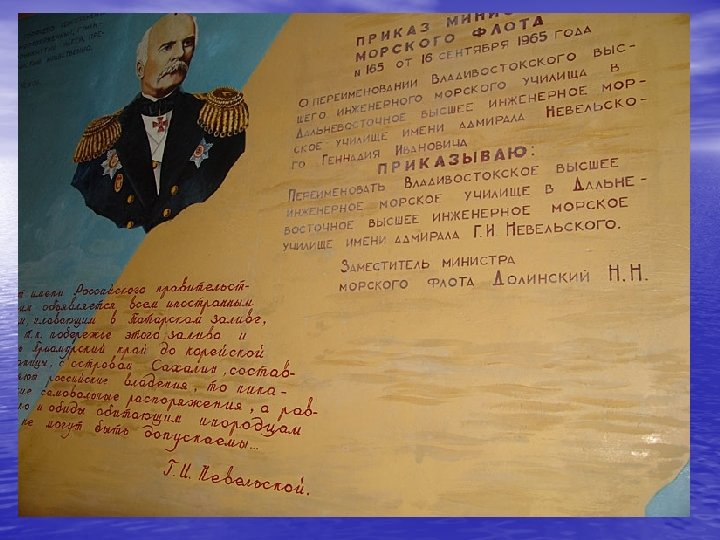 ПРИКАЗ
МОРСКОГО ФЛОТА
N 165 ОТ 16 СЕНТЯБРЯ 1965 ГОДА
О ПЕРЕИМЕНОВАНИИ ВЛАДИВОСТОКСКОГО ВЫС-
ШЕГО ИНЖЕНЕРНОГО МОРСКОГО УЧИЛИЩА В
ДАЛЬНЕВОСТОЧНОЕ ВЫСШЕЕ ИНЖЕНЕРНОЕ МОР-
СКОЕ УЧИЛИЩЕ ИМЕНИ АДМИРАЛА НЕВЕЛЬСКО-
ГО ГЕННАДИЯ ИВАНОВИЧА
ПРИКАЗЫВАЮ:
ПЕРЕИМЕНОВАТЬ ВЛАДИВОСТОКСКОЕ ВЫСШЕЕ
ИНЖЕНЕРНОЕ МОРСКОЕ УЧИЛИЩЕ В ДАЛЬНЕ-
ВОСТОЧНОЕ ВЫСШЕЕ ИНЖЕНЕРНОЕ МОРСКОЕ
УЧИЛИЩЕ ИМЕНИ АДМИРАЛА Г.И. НЕВЕЛЬСКОГО.
ЗАМЕСТИТЕЛЬ МИНИСТРА
МОРСКОГО ФЛОТА ДОЛИНСКИЙ Н.Н.
имени Российского правительст-
объявляется всем иностранным
плавающим в Татарском заливе,
т.к. побережье этого залива и
Приамурский край до корейской
с островом Сахалин, состав-
российские владения, то ника-
самовольные распоряжения, а рав-
и обиды обитающим инородцам
не могут быть допускаемы...
Г.И. Невельской.